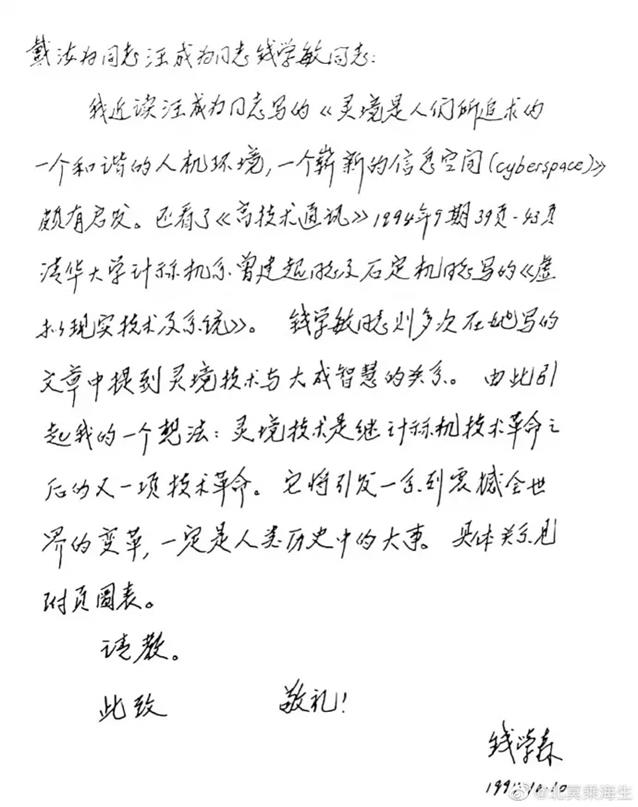 戴汝为同志汪成为同志钱学敏同志：
我近读汪成为同志写的《灵境是人们所追求的
一个和谐的人机环境，一个崭新的信息空间(cyberspace)》
颇有启发。还看了《高技术通讯》1994年9期39页-43页
清华大学计祘机系曾建超同志及石定机同志写的《虚
拟现实技术及系统》。 钱学敏同志则多次在她写的
文章中提到灵境技术与大成智慧的关系。由此引
起我的一个想法：灵境技术是继计祘机技术革命之
后的又一项技术革命。它将引发一系列震撼全世
界的变革，一定是人类历史中的大事。具体关系见
附页圖表。
请教。
此致 敬礼！
钱学森
1994.10.10
@北冥乘海生